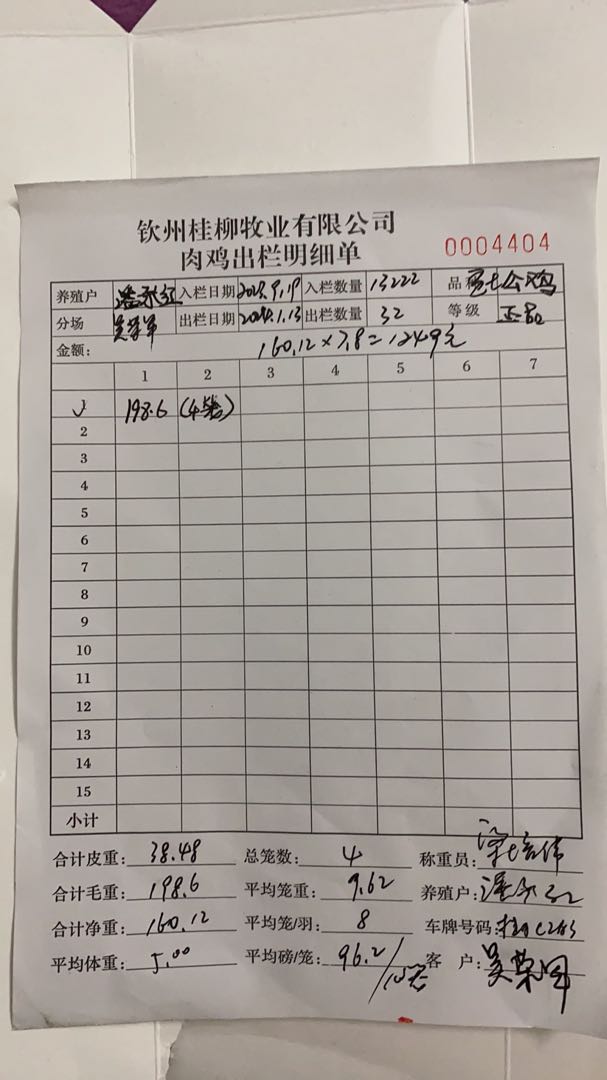 钦州桂柳牧业有限公司
肉鸡出栏明细单
0004404
养殖户 入栏日期 9.19 入栏数量 13222 品 公鸡
分场 出栏日期 1.13 出栏数量 32 等级 正品
金额: 160.12×7.8=1249元
1 2 3 4 5 6 7
1 198.6 (4笼)
2
3
4
5
6
7
8
9
10
11
12
13
14
15
小计
合计皮重: 38.48 总笼数: 4 称重员:
合计毛重: 198.6 平均笼重: 9.62 养殖户:
合计净重: 160.12 平均笼/羽: 8 车牌号码:
平均体重: 5.00 平均磅/笼: 96.2/10笼 客 户: